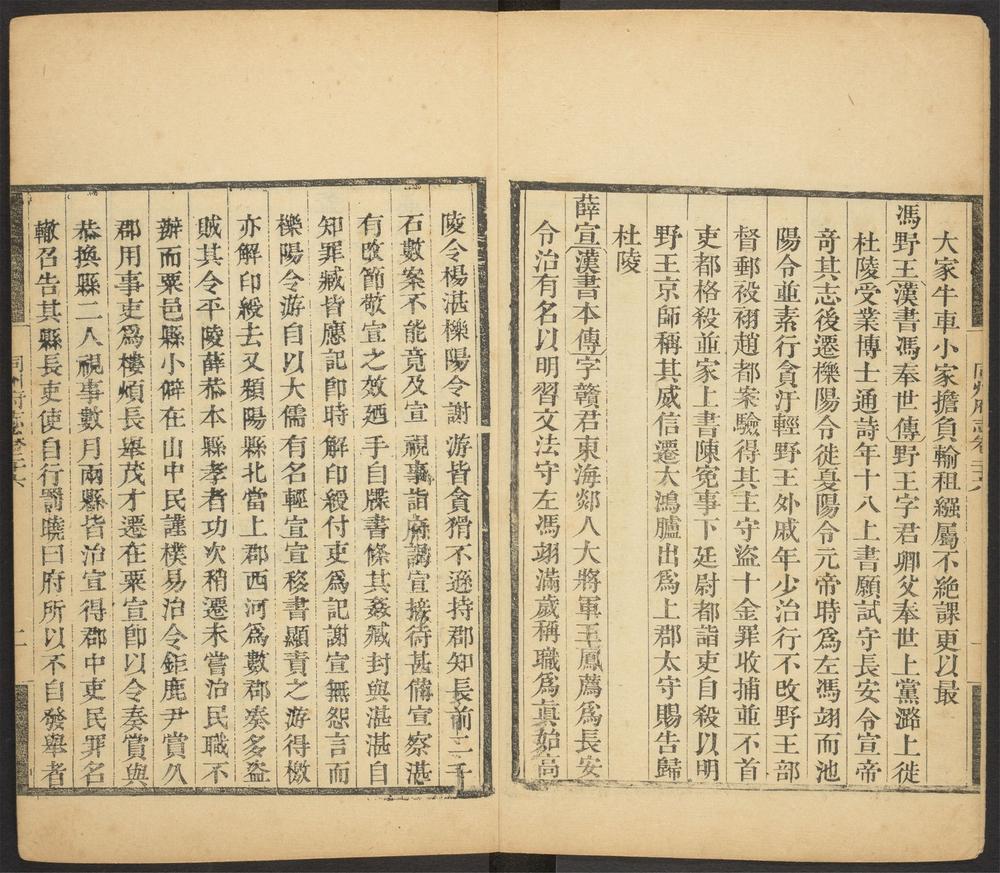 大家牛車小家擔負輸租繦屬不絕課更以最
馮野王漢書馮奉世傳野王字君卿父奉世上黨潞上徙
杜陵受業博士通詩年十八上書願試守長安令宣帝
奇其志後遷櫟陽令徙夏陽令元帝時爲左馮翊而池
陽令並素行貪汙輕野王外戚年少治行不攺野王部
督郵祋祤趙都案驗得其主守盜十金罪收捕並不首
吏都格殺並家上書陳寃事下廷尉都詣吏自殺以明
野王京師稱其威信遷大鴻臚出爲上郡太守賜告歸
杜陵
薛宣漢書本傳字贛君東海郯人大將軍王鳳薦爲長安
令治有名以明習文法守左馮翊滿歲稱職爲眞始高
陵令楊湛櫟陽令謝游皆貪猾不遜持郡短長前二千
石數案不能竟及宣視事詣府謁宣接待甚備宣察湛
有改節敬宣之效廼手自牒書條其姦臧封與湛湛自
知罪臧皆應記卽時解印綬付吏爲記謝宣無怨言而
櫟陽令游自以大儒有名輕宣宣移書顯責之游得檄
亦解印綬去又頻陽縣北當上郡西河爲數郡湊多盜
賊其令平陵薛恭本縣孝者功次稍遷未嘗治民職不
辦而粟邑縣小僻在山中民謹樸易治令鉅鹿尹賞久
郡用事吏爲樓煩長舉茂才遷在粟宣卽以令奏賞與
恭換縣二人視事數月兩縣皆治宣得郡中吏民罪名
輒召告其縣長吏使自行罰曉曰府所以不自發舉者
同州府志卷二十六
二